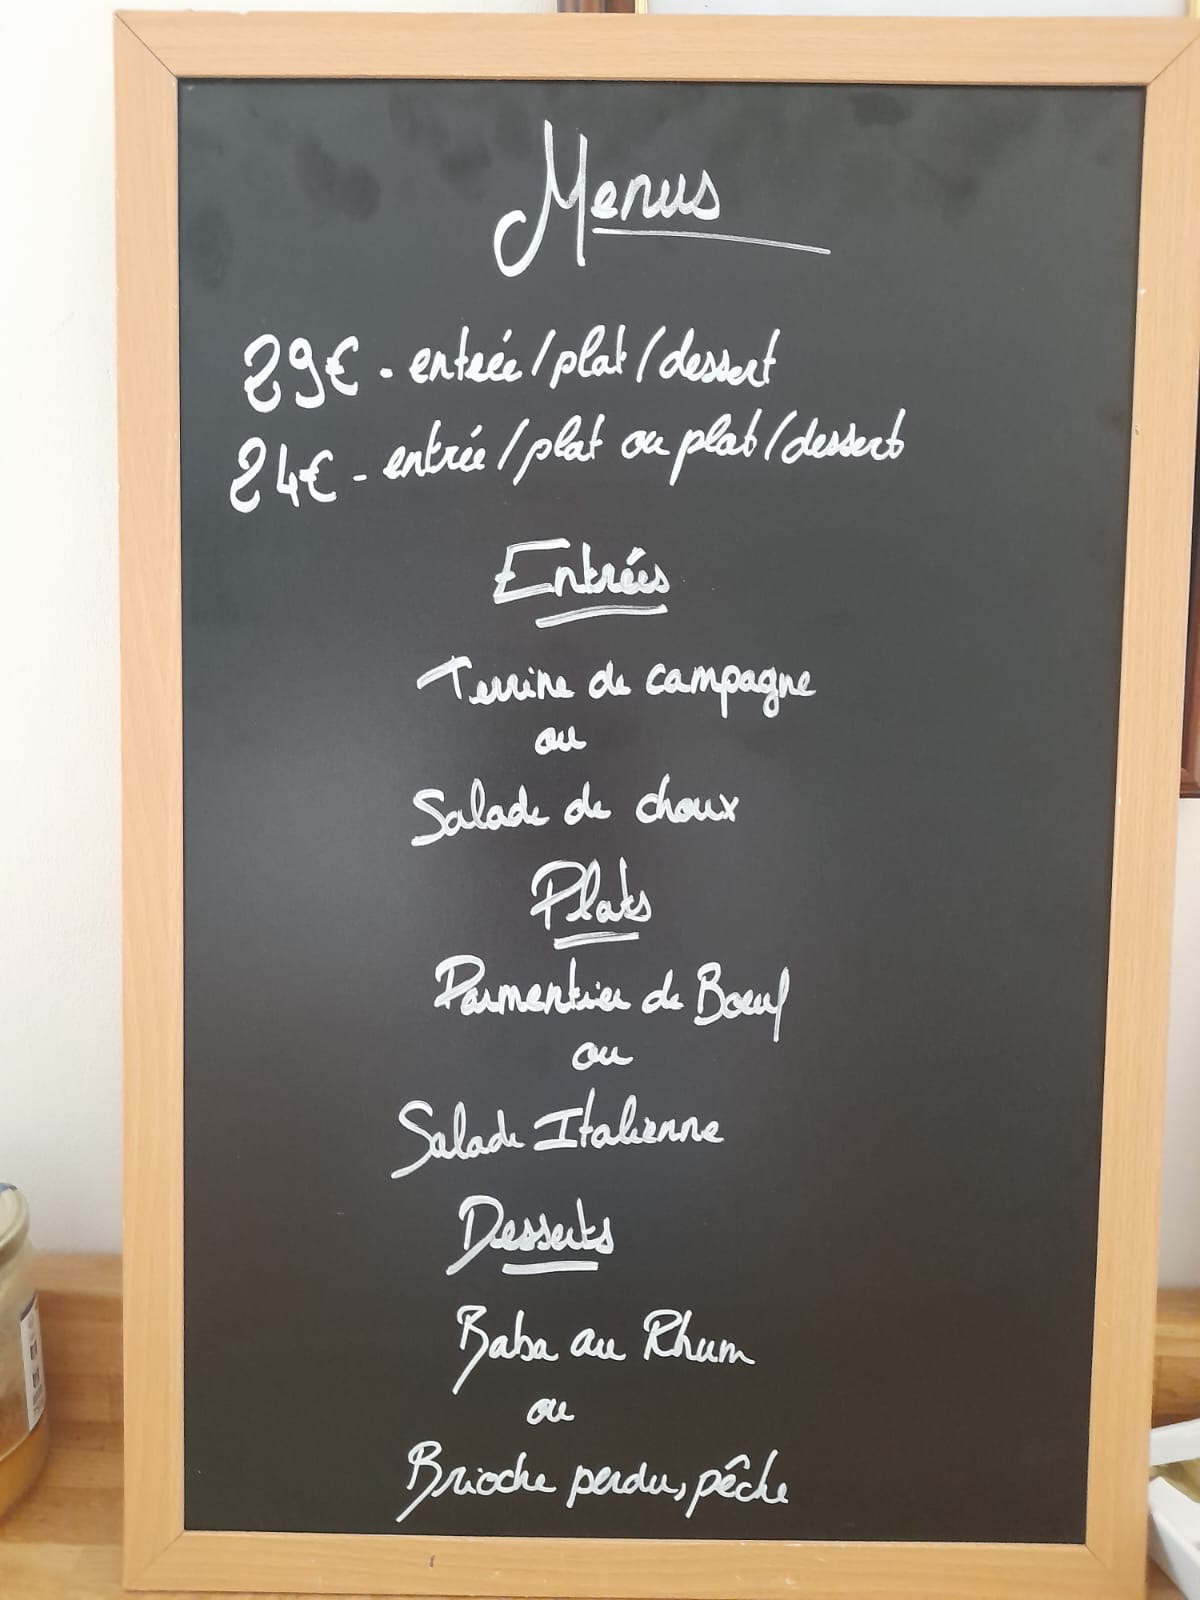 Menus
29€ - entrée/plat/dessert
24€ - entrée/plat ou plat/dessert
Entrées
Terrine de campagne
ou
Salade de choux
Plats
Parmentier de Boeuf
ou
Salade Italienne
Desserts
Baba au Rhum
ou
Brioche perdu, pêche